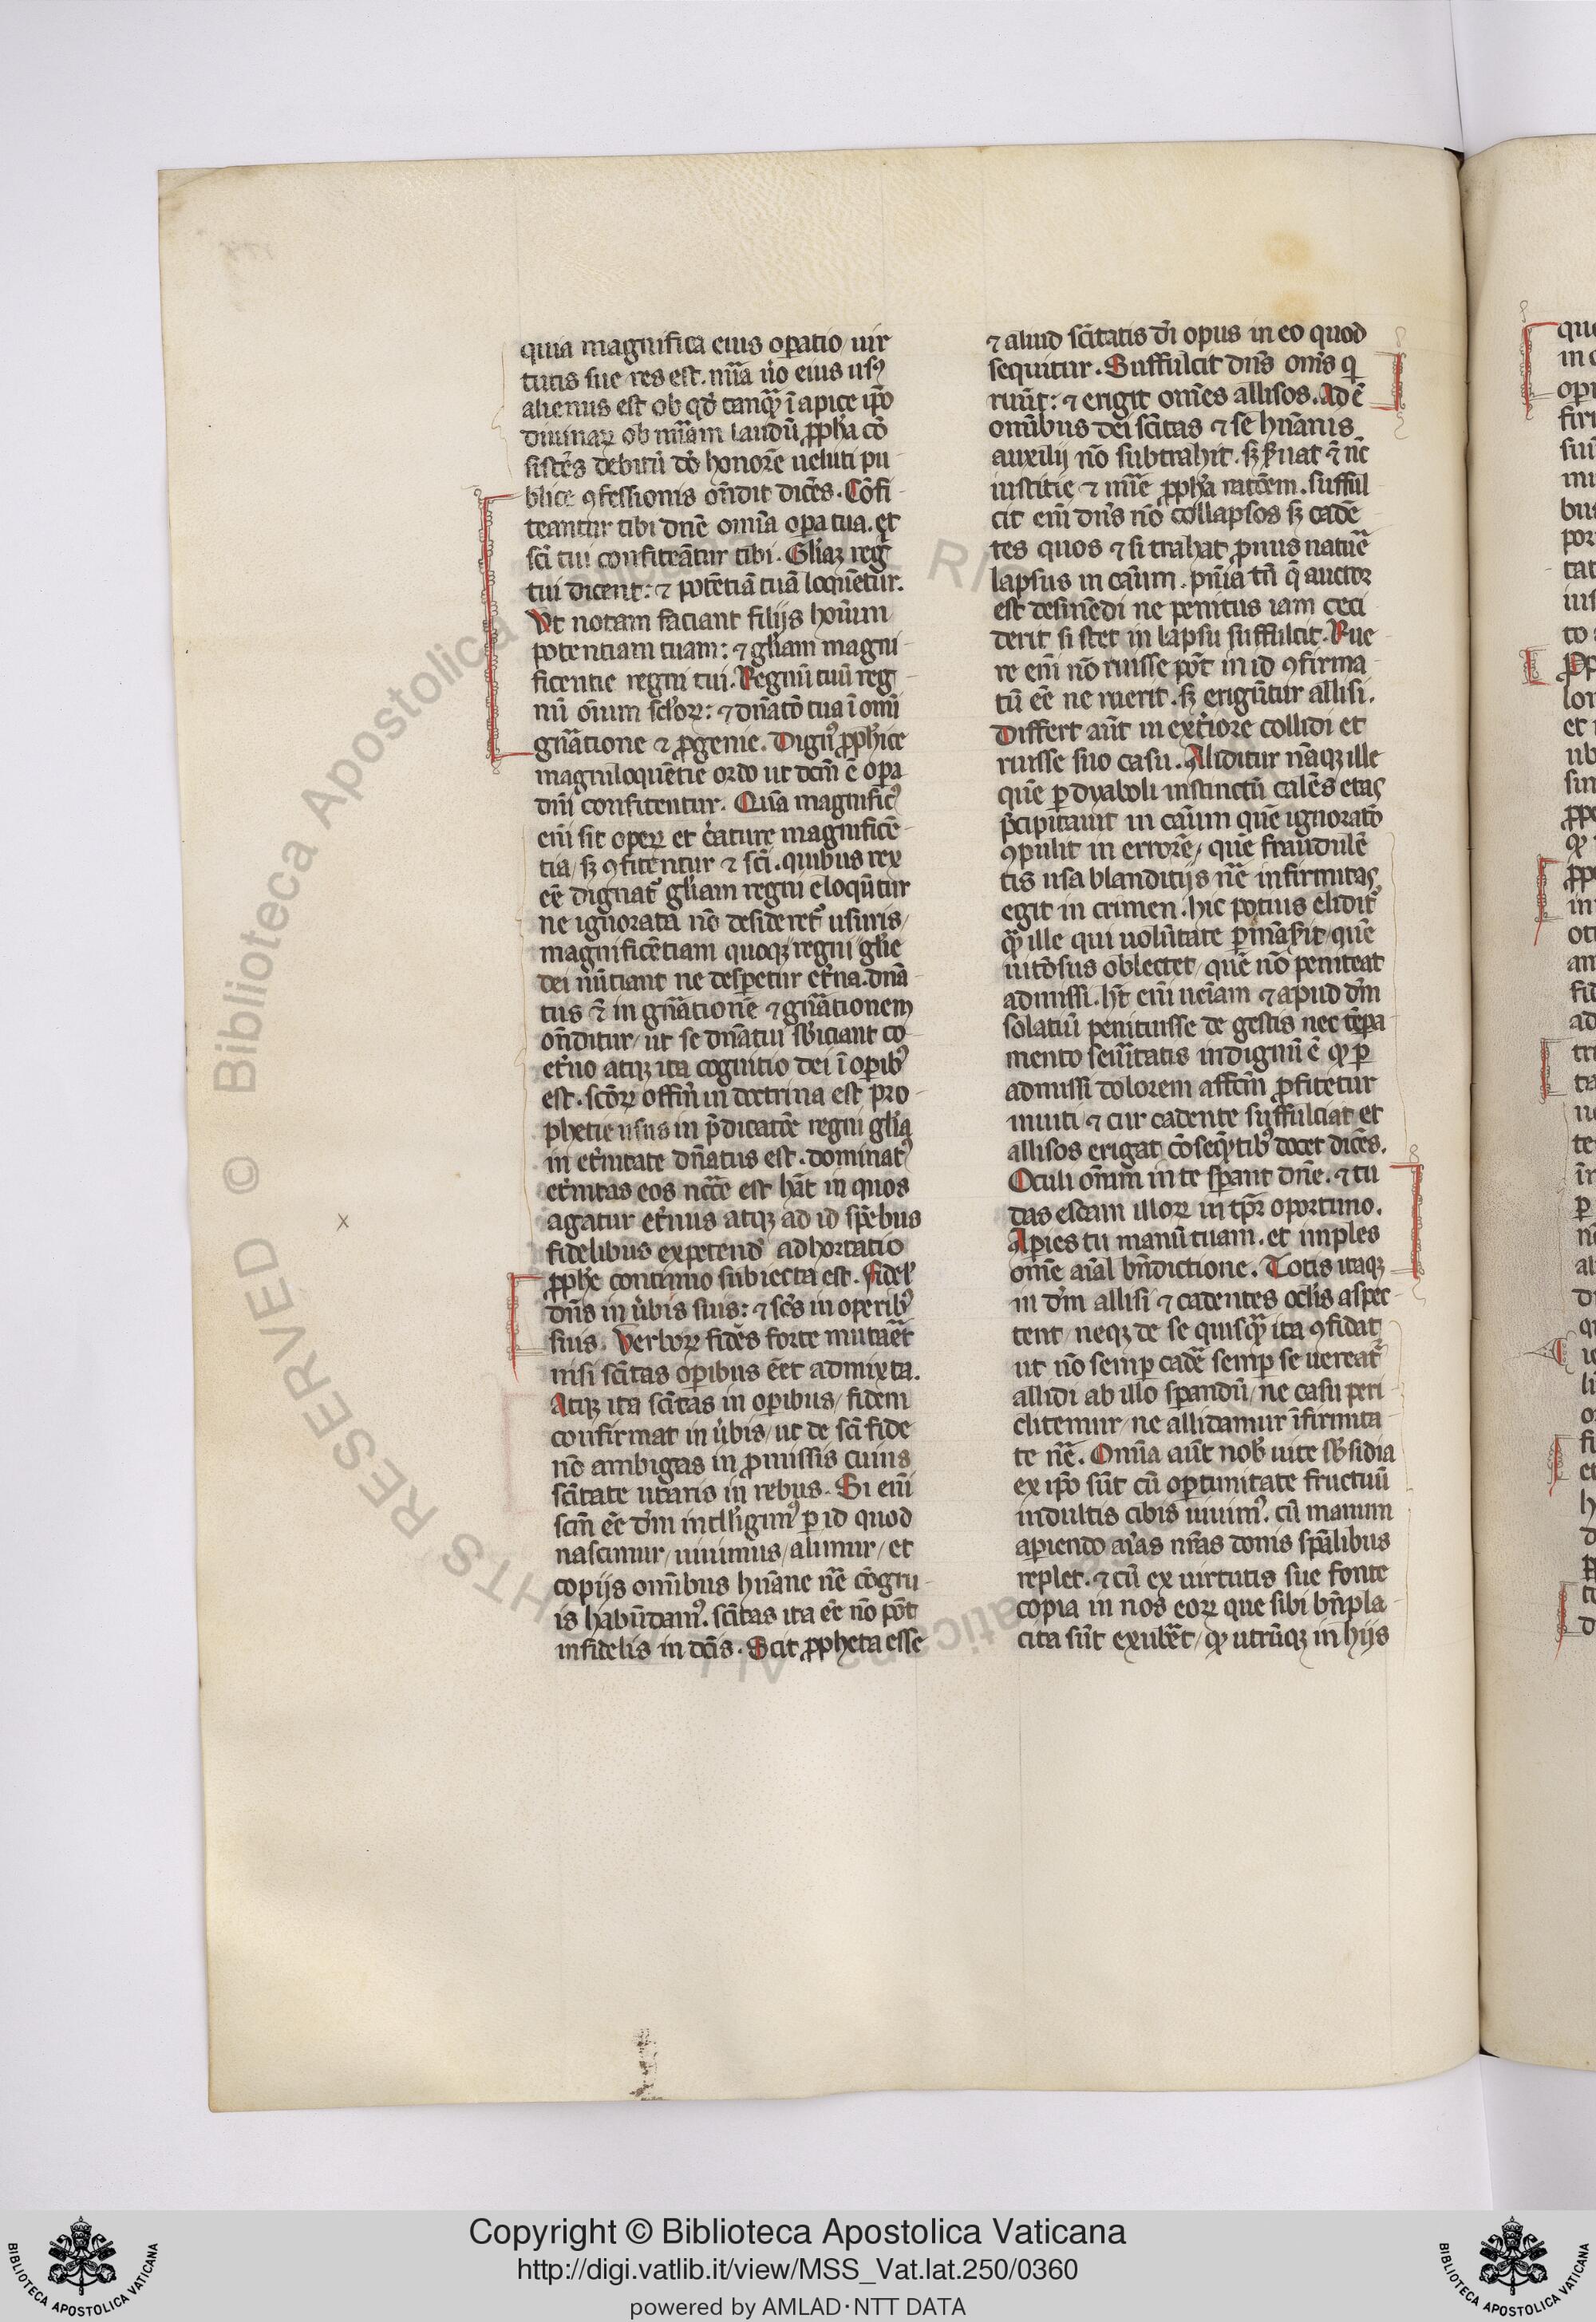 quia magnifica eius oꝑatio / uir
tutis sue / res est. mi͞a u̓o eius usꝰ
alienus est ob qd̓ tanqᷓ ī apice ip̄o
diuinaꝝ ob mi͞am laudū ꝓph̓a cō
sistēs debitū dō honorē ueluti pu-
blice ꝯfessionis on̄dit dicēs. Cōfi-
teantur tibi dn̄e om̄ia oꝑa tua. et
sc̄i tui confiteātur tibi. Gl̓iaꝫ reḡ
tui dicent: ⁊ potētiā tuā loquētur.
Vt notam faciant filijs hoīum
potentiam tuam: ⁊ gl̓iam magni-
ficentie regni tui. Regnū tuū reg-
nū oīum sc̄loꝝ: ⁊ dn̄atō tua ī om̄i
gn̄atione ⁊ ꝓgenie. Dignꝰ ꝓph̓ice
magniloquētie ordo ut dcm̄ ē oꝑa
dn̄i confitentur. Qūa magnificꝰ
eni̅ sit opeꝝ et c̓ature magnificē-
tia / sꝫ ꝯfitentur ⁊ sc̄i. quibus rex
eē dignat᷑ gl̓iam regni eloqūtur
ne ignorata nō desideret᷑ usuris /
magnificētiam quoqꝫ regni gl̓ie
dei nūtiant ne desꝑetur et̓na. dn̄a
tus ⁊̄ in gn̄ationē ⁊ gn̄ationem
on̄ditur / ut se dn̄atui sb̓iciant co-
et̓no atqꝫ ita cognitio dei ī oꝑibꝰ
est. scōꝝ offm̄ in doctrina est pro-
phetie usus in p̄dicatōe regni gl̓ia
in et̓nitate dn̄atus est. dominatꝰ
et̓nitas eos nc̄ce est hāt in quos
agatur et̓nus atqꝫ ad id sp̄ebus
fidelibus expetend᷑ adhortatio
ꝓph̓e continuo subiecta est. Fidel̓
dn̄s in u̓bis suis: ⁊ sc̄s in operibꝰ
suis. Verboꝝ fides forte mutaēt
nisi sc̄itas oꝑibus ēet admixta.
Atqꝫ ita sc̄itas in oꝑibus / fidem
confirmat in u̓bis / ut de sc̄i fide
nō ambigas in ꝓmissis cuius
sc̄itate utaris in rebus. Si eni̅
scm̄ eē dm̄ intell̓igimꝰ ꝑ id quod
nascimur / uiuimus / alimur / et
copijs omībus hūane nr̄e cōgru-
is habūdamꝰ. sc̄itas ita eē nō pōt
infidelis in dc̄is. Scit ꝓpheta esse
⁊ aliud sc̄itatis di̅ opus in eo quod
sequitur. Suffulcit dn̄s om̄s q̄
ruūt: ⁊ erigit om̄es allisos. Ad ē
omībus dei sc̄itas ⁊ se hūanis
auxilij nō subtrahit. sꝫ s̓uat ⁊̄ nc̄
iustitie ⁊ mi͞e ꝓph̓a ratōem. sufful
cit eni̅ dn̄s nō collapsos sꝫ cadē
tes quos ⁊ si trahat ꝓnus nature
lapsus in casum. pn̄ia tn̄ q̄ auctor
est desinēdi ne penitus iam ceci
derit si stet in lapsu suffulcit. Rue-
re eni̅ nō ruisse pōt in id ꝯfirma-
tū eē ne ruerit. sꝫ erigūtur allisi.
Differt aūt in ext̓iore collidi et
ruisse suo casu. Aliditur nāqꝫ ille
quē ꝑ dyaboli instinctū calēs etas
p̄cipitauit in casum quē ignoratō
ꝯpulit in errorē / quē fraudulē
tis usa blanditijs nr̄e infirmitas
egit in crimen. hic potius elidit᷑
qᷓ ille qui uolūtate ꝑmāsit / quē
uitōsus oblectet / quē nō peniteat
admissi. ht̄ eni̅ ueīam ⁊ apud dm̄
solatiū penituisse de gestis nec tēꝑa
mento seūitatis indignū ē ꝙ ꝑ
admissi dolorem affcm̄ ꝓfitetur
inuiti ⁊ cur cadente suffulciat et
allisos erigat cōseqᷓtibꝰ docet dicēs.
Oculi om̄im in te sꝑant dn̄e. ⁊ tu
das escam illoꝝ in tpr̄ oportuno.
Aꝑies tu manū tuam. et imples
om̄e aīal bn̄dictione. Totis itaqꝫ
in dm̄ allisi ⁊ cadentes oclis aspec-
tent / neqꝫ de se quisqᷓ ita ꝯfidat
ut nō semꝑ cadē semꝑ se uereat᷑
allidi ab illo sꝑandū / ne casu peri-
clitemur / ne allidamur īfirmita-
te nr̄e. Om̄ia aūt nob̓ uite sb̓sidia
ex ip̄o sūt cū oꝑtunitate fructuū
indultis cibis uiuimꝰ. cū manum
aꝑiendo aīas nr̄as donis sp̄alibus
replet. ⁊ cū ex uirtutis sue fonte
copia in nos eoꝝ que sibi bn̄pla-
cita sūt exubēt / ꝙ utrūqꝫ in hijs
Copyright © Biblioteca Apostolica Vaticana
http://digi.vatlib.it/view/MSS_Vat.lat.250/0360
powered by AMLAD·NTT DATA